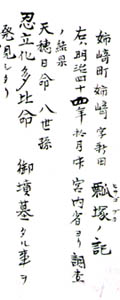 姉崎町姉崎字新田 瓢塚ノ記
右ハ明治四十四年拾月 宮内省ヨリ調査
ノ結果
天穂日命 八世孫
忍立化多比命 御墳墓タル事ヲ
発見シタリ